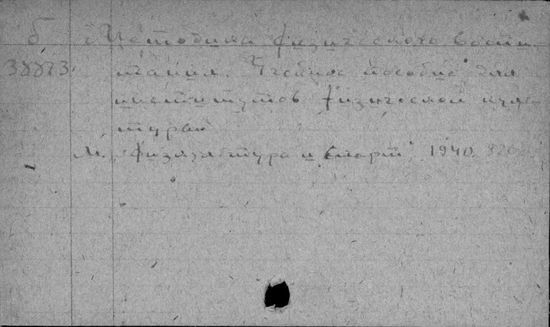 б Методика физического воспи
38873 тания. Учебное пособие для
институтов физической куль
туры
М., "Физкультура и спорт", 1940.